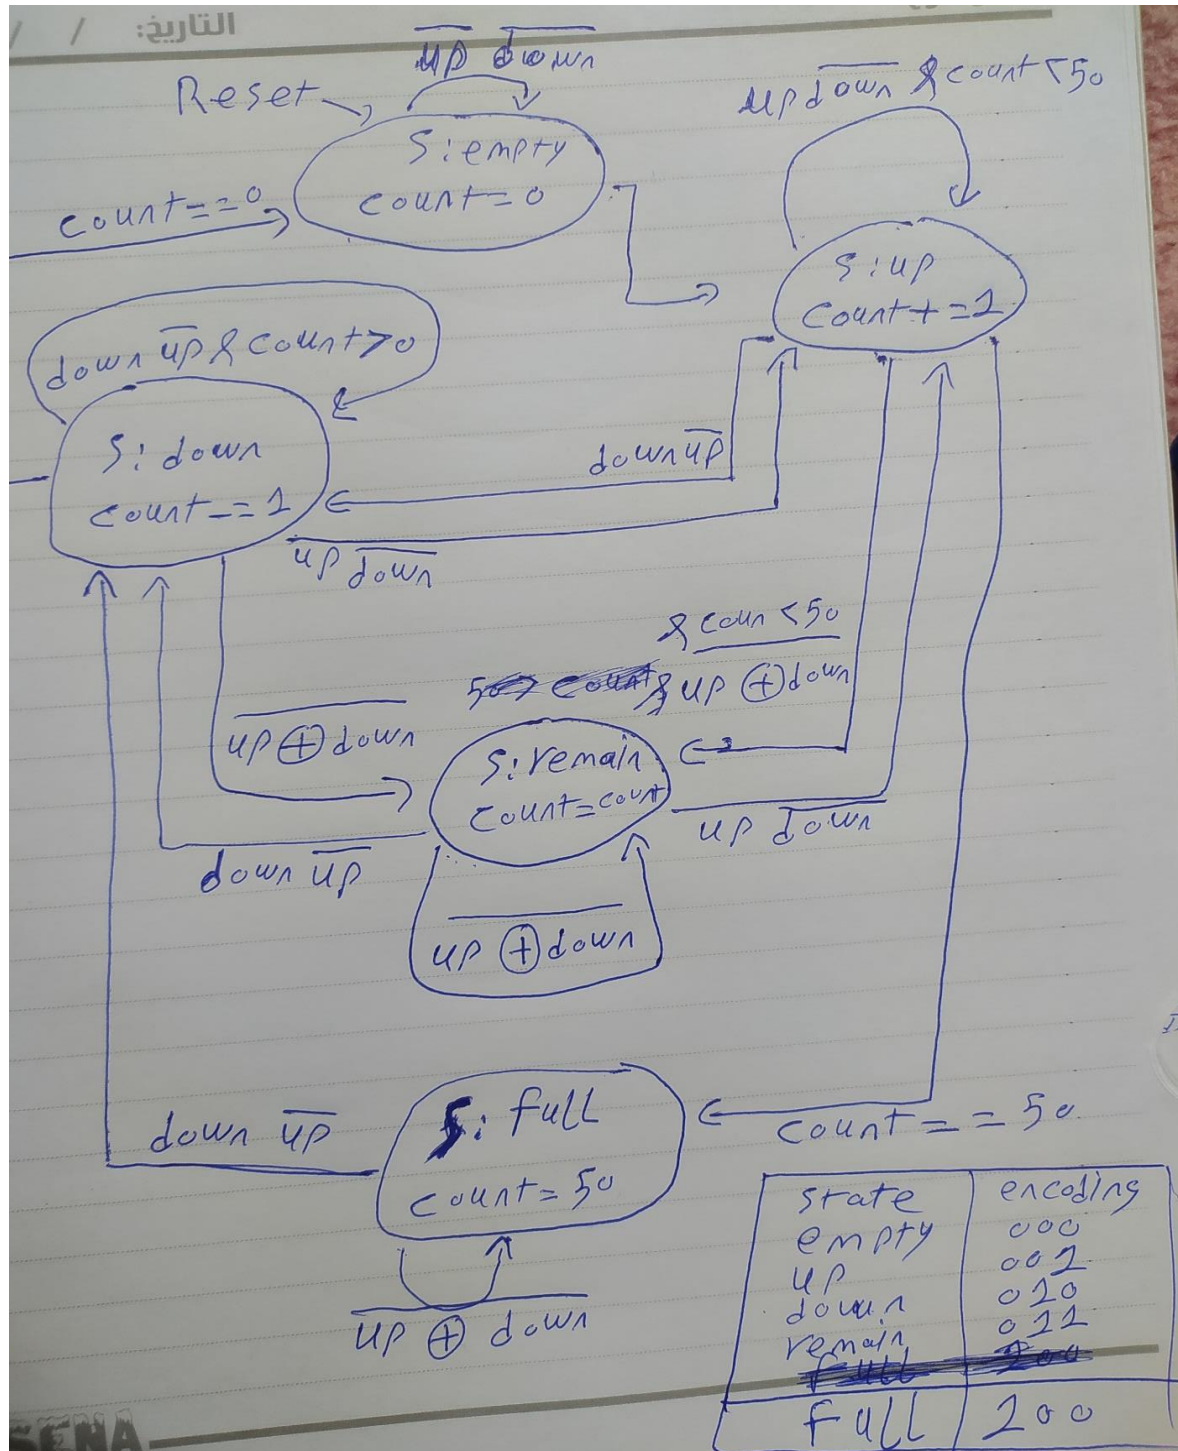 التاريخ: / /
up̅ d̅o̅w̅n̅
Reset
up d̅o̅w̅n̅ & count < 50
S: empty
count = 0
count == 0
S: up
count += 1
down u̅p̅ & count > 0
S: down
count -= 1
down u̅p̅
up d̅o̅w̅n̅
& coun < 50
up ⊕ down
up ⊕ down
S: remain
count = count
up d̅o̅w̅n̅
down u̅p̅
up ⊕ down
S: full
count = 50
count == 50
down u̅p̅
up ⊕ down
state encoding
empty 000
up 001
down 010
remain 011
full 100
SENA